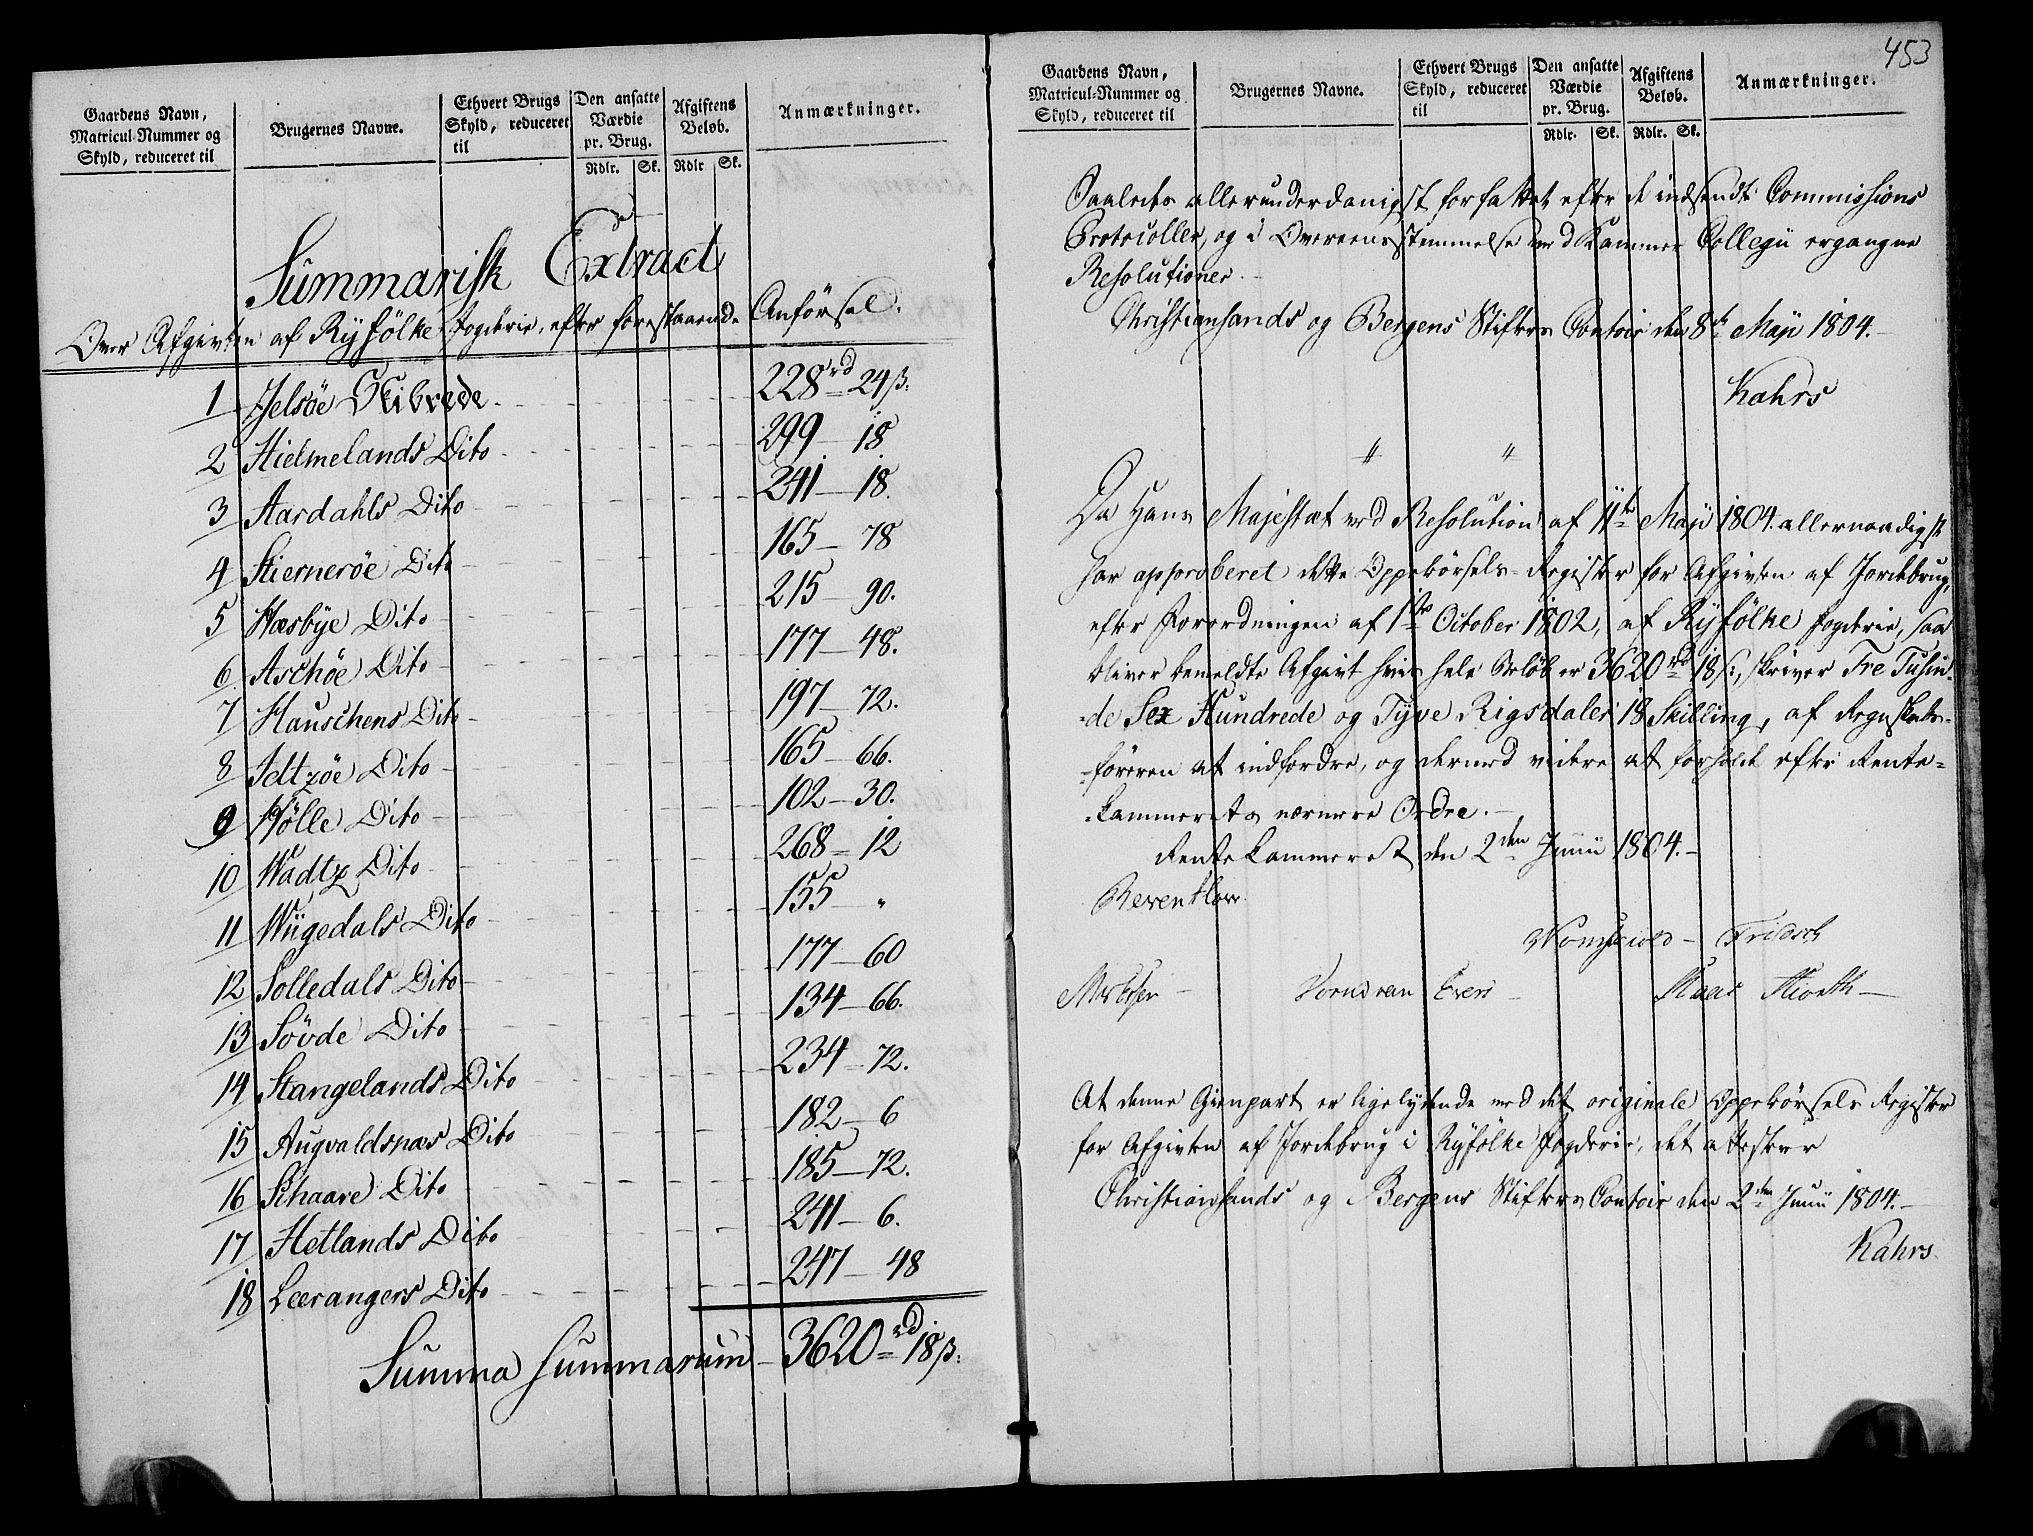 Gaardens Navn,
Matricul-Nummer og
Skyld, reduceret til
Brugernes Navne.
Ethvert Brugs
Skyld, reduceret
til
Den ansatte
Værdie
pr. Brug.
Rdlr. Sk.
Afgiftens
Beløb.
Rdlr Sk.
Anmærkninger.
Summarisk Extract
Over Afgivten af Ryfölke Fogderie, efter forestaaende Anförsel.
1 Jelsöe Skibrede 228 rd 24 β:
2 Hielmelands Dito 299 - 18
3 Aardahls Dito 241 - 18.
4 Stierneröe Dito 165 - 78
5 Hæsbye Dito 215 - 90.
6 Aschöe Dito 177 - 48.
7 Hauschens Dito 197 - 72.
8 Idtzöe Dito 165 - 66.
9 Hölle Dito 102 - 30.
10 Wadtz Dito 268 - 12
11 Wiigedals Dito 155 "
12 Solledals Dito 177 - 60
13 Sövde Dito 134 - 66.
14 Stangelands Dito 234 - 72.
15 Augvaldsnæs Dito 182 - 6
16 Schaare Dito 185 - 72.
17 Hetlands Dito 241 - 6.
18 Leerangers Dito 247 - 48
Summa Summarum - 3620 rd 18 β:
453
Gaardens Navn,
Matricul-Nummer og
Skyld, reduceret til
Brugernes Navne.
Ethvert Brugs
Skyld, reduceret
til
Den ansatte
Værdie
pr. Brug.
Rdlr. Sk.
Afgiftens
Beløb.
Rdlr. Sk.
Anmærkninger.
Saaledes allerunderdanigst forfattet efter de indsendte Commissions
Protocoller, og i Overeensstemmelse med Kammer Collegii ergangne
Resolutioner.
Christiansands og Bergens Stifters Contoir den 8de Maji 1804.
Kahrs
" "
Da Hans Majestæt ved Resolution af 11te Maji 1804. allernaadigst
har approberet dette Oppebörsels-Register for Afgivten af Jordebrug,
efter Forordningen af 1ste October 1802, af Ryfölke Fogderie, saa
bliver bemeldte Afgivt hvis hele Belöb er 3620 rd 18 β:, skriver Tre Tusin-
-de Sex Hundrede og Tyve Rigsdaler 18 Skilling, af Regnskabs-
-föreren at indfordre, og dermed videre at forholde efter Rente-
-kammerets nærmere Ordre.
Rentekammeret den 2den Junii 1804.
Reventlow
Wormskiold - Fridsch
Vornsran Evers
Kaas Hiorth
At denne Gienpart er ligelydende med det originale Oppebörsels Register
for Afgivten af Jordebrug i Ryfölke Fogderie, det attesterer
Christiansands og Bergens Stifters Contoir den 2den Junii 1804.
Kahrs.